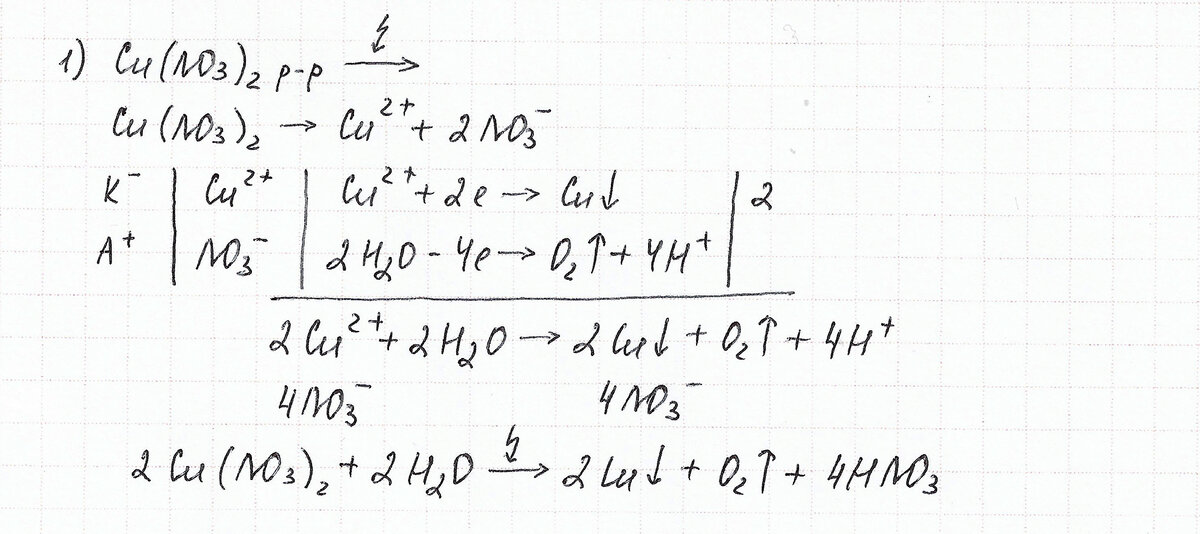 1) Cu(NO₃)₂ р-р →
Cu(NO₃)₂ → Cu²⁺ + 2NO₃⁻
K⁻ | Cu²⁺ | Cu²⁺ + 2e → Cu↓ | 2
A⁺ | NO₃⁻ | 2H₂O - 4e → O₂↑ + 4H⁺ |
2Cu²⁺ + 2H₂O → 2Cu↓ + O₂↑ + 4H⁺
4NO₃⁻ 4NO₃⁻
2Cu(NO₃)₂ + 2H₂O → 2Cu↓ + O₂↑ + 4HNO₃